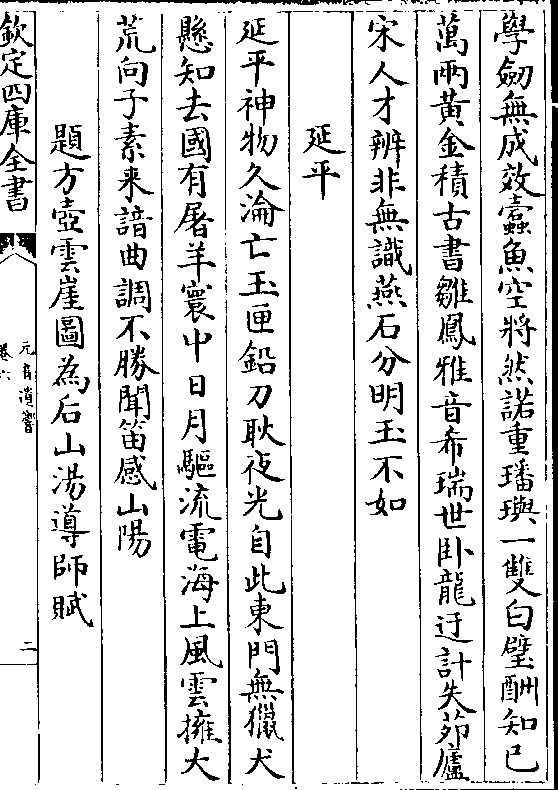 學劒無成效蠧魚空將然諾重璠璵一雙白璧酬知已
萬兩黃金積古書雛鳳雅音希瑞世卧龍迂計失茆廬
宋人才辨非無識燕石分明玉不如
延平
延平神物久淪亡玉匣鉛刀耿夜光自此東門無獵犬
懸知去國有屠羊寰中日月驅流電海上風雲擁大
荒向子素来諳曲調不勝聞笛感山陽
題方壺雲崖圖為后山湯導師賦
欽定四庫全書
元音遺響
卷六
二